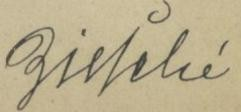 Ziesché